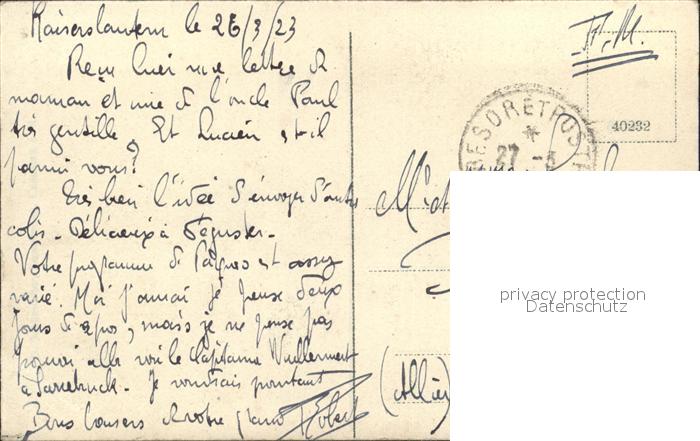 Kaiserslautern le 26/3/23
F.M.
Reçu hier une lettre de
maman et une de l'oncle Paul
très gentille. Et Lucien est-il
parmi vous?
Très bien l'idée d'envoyer d'autres
colis. Délicieux à déguster.
Votre programme de Pâques est assez
varié. Moi j'aurai je pense deux
jours de repos, mais je ne pense pas
pouvoir aller voir le Capitaine Vuillermet
à Sarrebruck. Je voudrais pourtant
Bons baisers de votre grand Robert
40232
TRESOR ET POSTES
27 -3
(Allier
privacy protection
Datenschutz